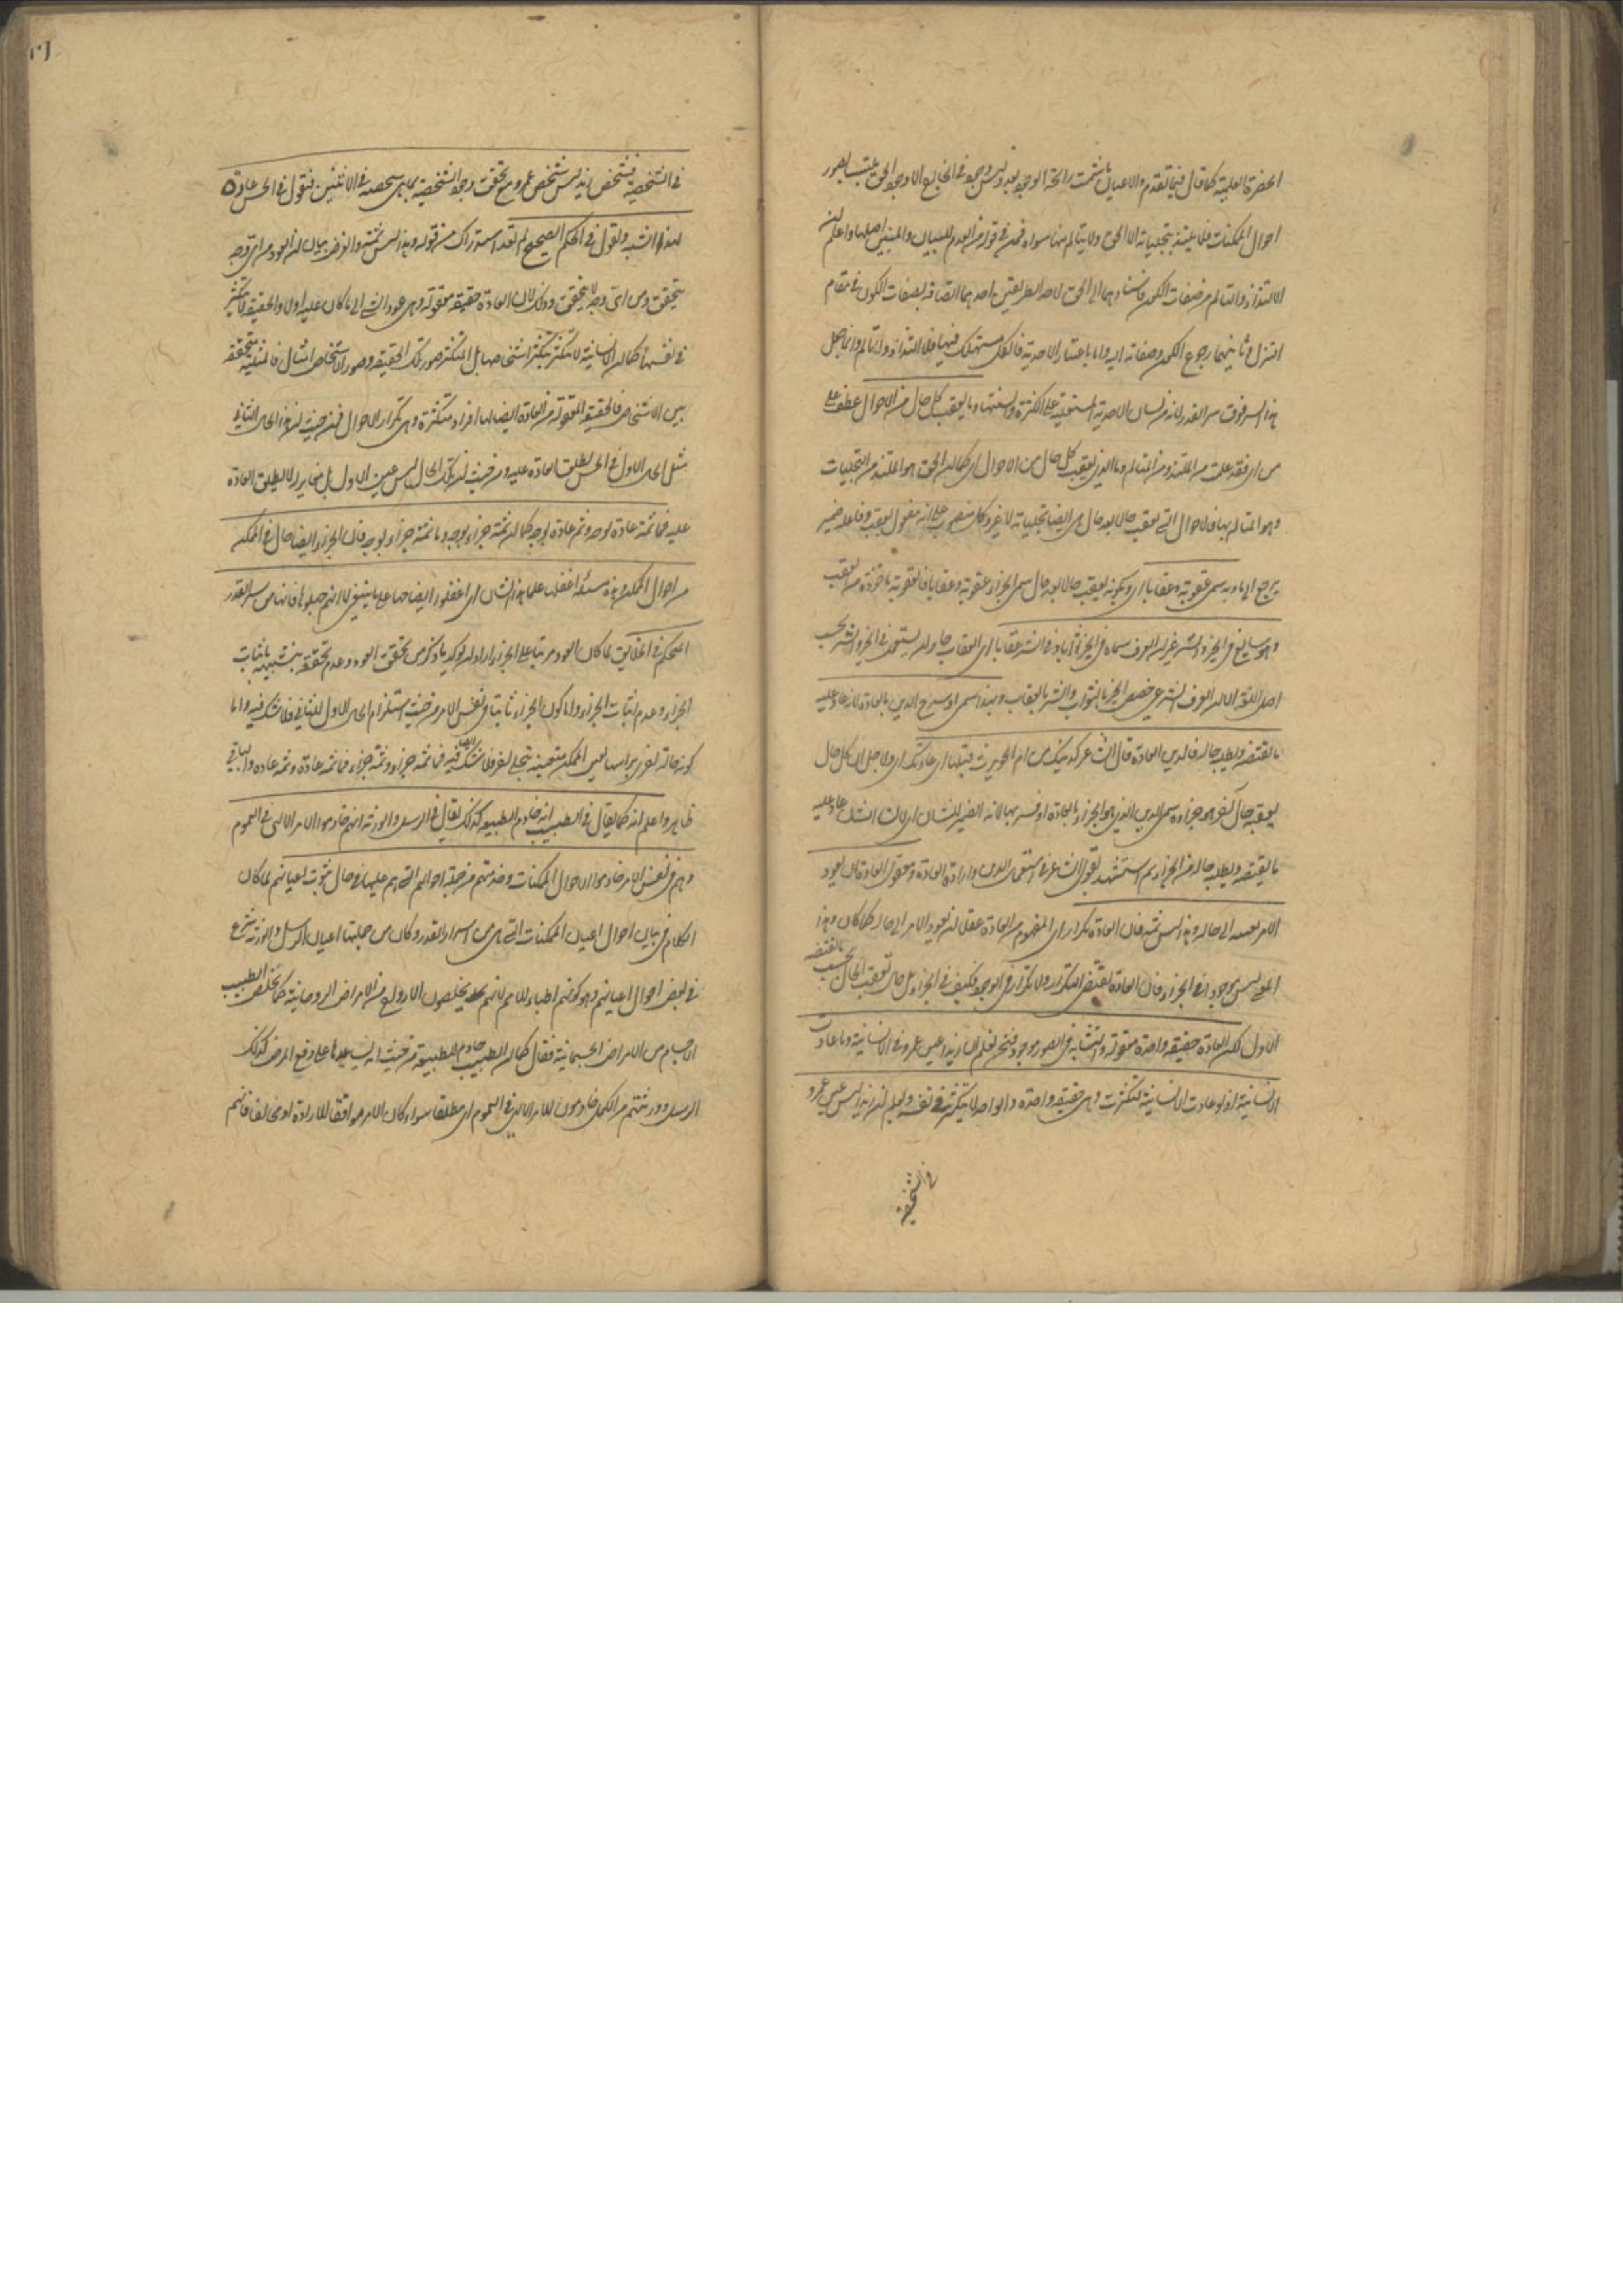 الحضرة العلمية كما قال فيما تقدم والاعيان ما شمت رائحة الوجود بعد وليس وجود في الخارج الا وجود الحق متلبسا بصور
احوال الممكنات فلا يلتذ بتجلياته الا الحق ولا يتالم منها سواه فمن في قوله من العدم للبيان والمبين اصلها واعلم ان
الالتذاذ والتالم من صفات الكون فاسنادهما الى الحق لاحد الطريقين احدهما اتصافه بصفات الكون في مقام
التنزل وثانيهما رجوع الكون وصفاته اليه واما باعتبار الاحدية فالكل مستهلك فيها فلا التذاذ ولا تالم وانما جعل
هذا السر فوق سر القدر لانه من لسان الاحدية المستعلية على الكثرة والسنتها وما يعقب كل حال من الاحوال عطف على
من اي فقد علمت من الملتذ ومن المتالم وما الذي يعقب كل حال من الاحوال اي كما ان الحق هو الملتذ من التجليات
وهو المتالم بها فالاحوال التي تعقب حالا بعد حال هي ايضا تجلياته لا غير وكل منصوب على انه مفعول يعقب وفاعله ضمير
يرجع الى ما وبه سمي عقوبة وعقابا اي وبكونه يعقب حالا بعد حال سمي الجزاء عقوبة وعقابا فالعقوبة ماخوذة من العقب
وهو سايغ في الخير والشر غير ان العرف سماه في الخير ثوابا وفي الشر عقابا اي العقاب جاز ان يستعمل في الخير والشر بحسب
اصل اللغة الا ان العرف الشرعي خصص الخير بالثواب والشر بالعقاب وبهذا سمي او شرح الدين بالعادة لانه عاد عليه
ما يقتضيه ويطلبه حاله فالدين العادة قال الشاعر كدينك من ام الحويرث قبلها اي عادتك اي ولاجل ان كل حال
يعقبه حال آخر هو جزاءه سمي الدين الذي هو الجزاء بالعادة او فسر بها لانه الضمير للشان اي لان الشان عاد عليه
ما يقتضيه ويطلبه حاله من الجزاء ثم استشهد بقول الشاعر في استعمال الدين وارادة العادة ومعقول العادة ان يعود
الامر بعينه الى حاله وهذا ليس ثمه فان العادة تكرار اي المفهوم من العادة عقلا ان يعود الامر الى حاله كما كان وهذا
المعنى ليس موجودا في الجزاء فان العادة تقتضي التكرار ولا تكرار في الوجود فكيف في الجزاء بل حال تعقب الحال بحسب ما يقتضيه
الاول لكن العادة حقيقة واحدة معقولة والتشابه في الصور موجود فنحن نعلم ان زيدا عين عمرو في الانسانية وما عادت
الانسانية اذ لو عادت الانسانية لتكثرت وهي حقيقة واحدة والواحد لا يتكثر في نفسه ونعلم ان زيدا ليس عين عمرو
في الشخصية
في الشخصية فشخص زيد ليس شخص عمرو مع تحقق وجود الشخصية بما هي شخصية في الاثنين فنقول في الحس عادة
لهذا الشبه ونقول في الحكم الصحيح لم تعد استدراك من قوله وهذا ليس ثمة والغرض بيان ان العود من اي وجه
يتحقق ومن اي وجه لا يتحقق وذلك لان العادة حقيقة معقولة وهي عود الشي الى ما كان عليه اولا والحقيقة لا تتكثر
في نفسها كما ان الانسانية لا تتكثر بتكثر اشخاصها بل المتكثر صور تلك الحقيقة وصور الاشخاص امثال فالمثلية متحققة
بين الاشخاص فالحقيقة المعقولة من العادة ايضا لها افراد متكثرة وهي تكرار الاحوال فمن حيث ان هذا الحال الثاني
مثل الحال الاول في الحس يطلق العادة عليه ومن حيث ان تلك الحال ليس عين الاول بل مغاير له لا يطلق العادة
عليه فما ثمة عادة بوجه وثم عادة بوجه كما ان ثمة جزاء بوجه وما ثمة جزاء بوجه فان الجزاء ايضا حال في الممكن
من احوال الممكن وهذه مسئلة اغفلها علماء هذا الشان اي اغفلوا ايضاحها على ما ينبغي لا انهم جهلوها فانها من سر القدر
المتحكم في الخلايق لما كان العود مرتبا على الجزاء اراد ان يؤكد ما ذكر من تحقق العود وعدم تحققه بتشبيهه باثبات
الجزاء وعدم اثبات الجزاء واما كون الجزاء ثابتا في نفس الامر من حيث استلزام الحال الاول للثاني فلا شك فيه واما
كونه حالة اخرى براسها لعين الممكن متعينة بتجلي اخر فلا شك فيه ايضا فما ثمة جزاء وثمة جزاء فما ثمة عادة وثمة عادة والباقي
ظاهر واعلم انه كما يقال في الطبيب انه خادم الطبيعة كذلك يقال في الرسل والورثة انهم خادموا الامر الالهي في العموم
وهم في نفس الامر خادموا احوال الممكنات وخدمتهم من جملة احوالهم التي هم عليها في حال ثبوت اعيانهم لما كان
الكلام في بيان احوال اعيان الممكنات التي هي من اسرار القدر وكان من جملتها اعيان الرسل والورثة شرع
في بعض احوال اعيانهم وهو كونهم اطباء للامم لانهم يخلصون الارواح من الامراض الروحانية كما يخلص الطبيب
الاجسام من الامراض الجسمانية فقال كما ان الطبيب خادم للطبيعة من حيث انه يساعدها على دفع المرض كذلك
الرسل وورثتهم من الكمل خادمون للامر الالهي في العموم اي مطلقا سواء كان الامر موافقا للارادة او مخالفا فانهم